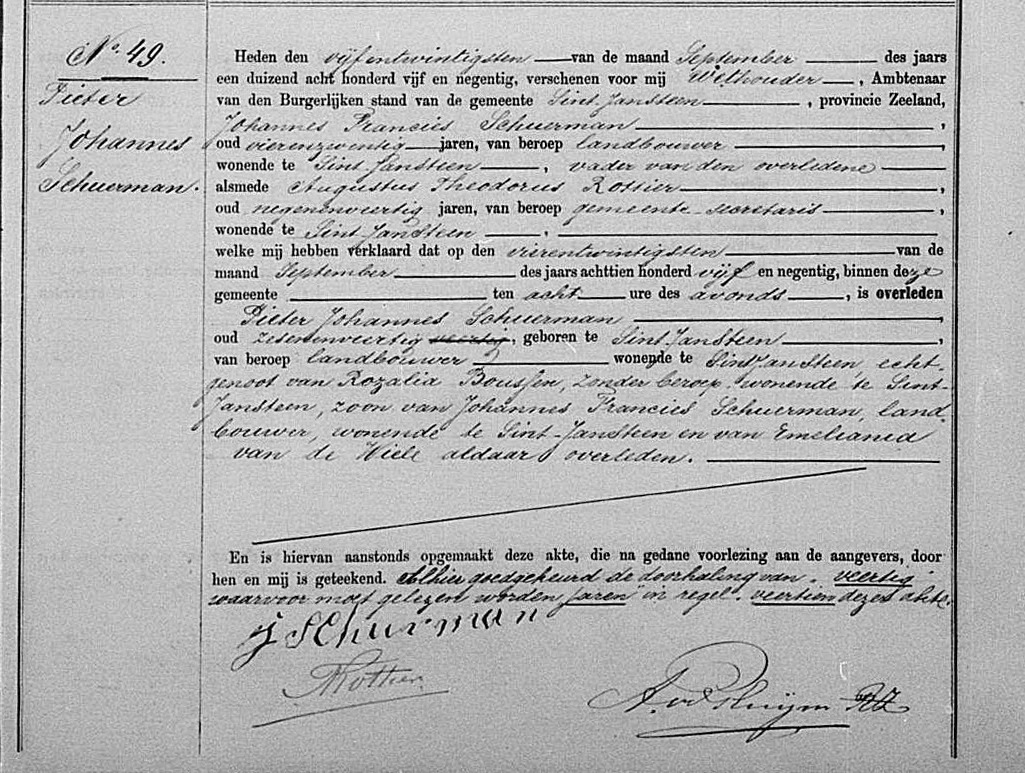 No. 49.
Pieter
Johannes
Schuerman.
Heden den vijfentwintigsten van de maand September des jaars
een duizend acht honderd vijf en negentig, verschenen voor mij Wethouder, Ambtenaar
van den Burgerlijken stand van de gemeente Sint Jansteen, provincie Zeeland,
Johannes Francies Schuerman,
oud vierenzeventig jaren, van beroep landbouwer,
wonende te Sint Jansteen, vader van den overledene
alsmede Augustus Theodorus Rottier,
oud negenenveertig jaren, van beroep gemeente-secretaris,
wonende te Sint Jansteen,
welke mij hebben verklaard dat op den vierentwintigsten van de
maand September des jaars achttien honderd vijf en negentig, binnen deze
gemeente ten acht ure des avonds, is overleden
Pieter Johannes Schuerman,
oud zesenveertig veertig, geboren te Sint Jansteen,
van beroep landbouwer wonende te Sint Jansteen, echt-
genoot van Rozalia Boussen, zonder beroep wonende te Sint-
Jansteen, zoon van Johannes Francies Schuerman, land
bouwer, wonende te Sint-Jansteen en van
van de Wiele aldaar overleden.
En is hiervan aanstonds opgemaakt deze akte, die na gedane voorlezing aan de aangevers, door
hen en mij is geteekend. Alhier goedgekeurd de doorhaling van "veertig"
waarvoor moet gelezen worden "jaren" in regel "veertien" dezer akte.
J Schurman
Rottier